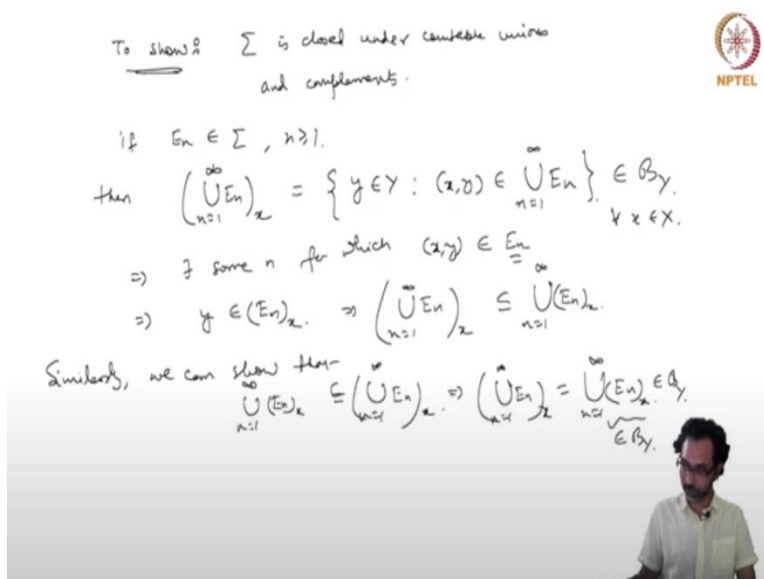 To show: Σ is closed under countable unions
and complements.
NPTEL
if En ∈ Σ, n≥1.
then (∪_{n=1}^∞ En)_x = { y∈Y : (x,y) ∈ ∪_{n=1}^∞ En } ∈ B_Y.
∀ x ∈ X.
⇒ ∃ some n for which (x,y) ∈ En
⇒ y ∈ (En)_x. ⇒ (∪_{n=1}^∞ En)_x ⊆ ∪_{n=1}^∞ (En)_x.
Similarly, we can show that
∪_{n=1}^∞ (En)_x ⊆ (∪_{n=1}^∞ En)_x. ⇒ (∪_{n=1}^∞ En)_x = ∪_{n=1}^∞ (En)_x ∈ B_Y.
∈ B_Y.